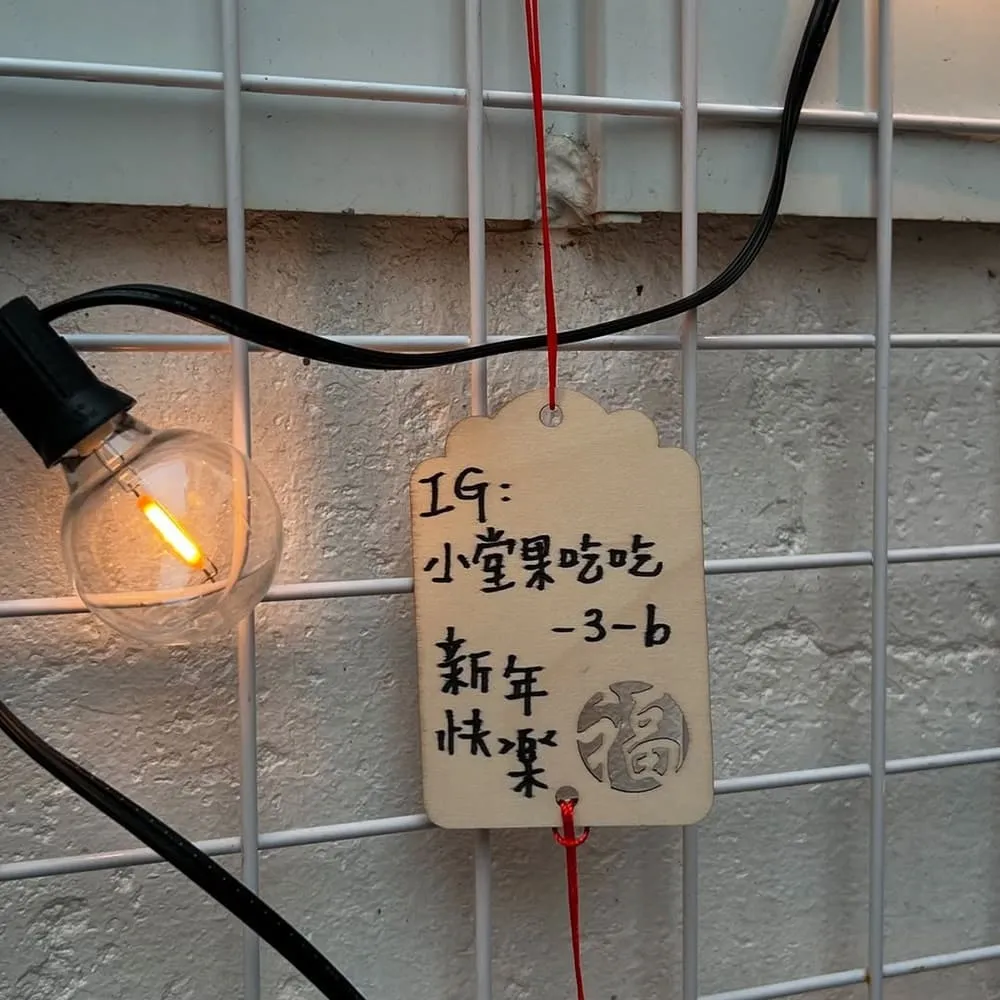 IG:
小堂果吃吃
-3-b
新年
快樂
福